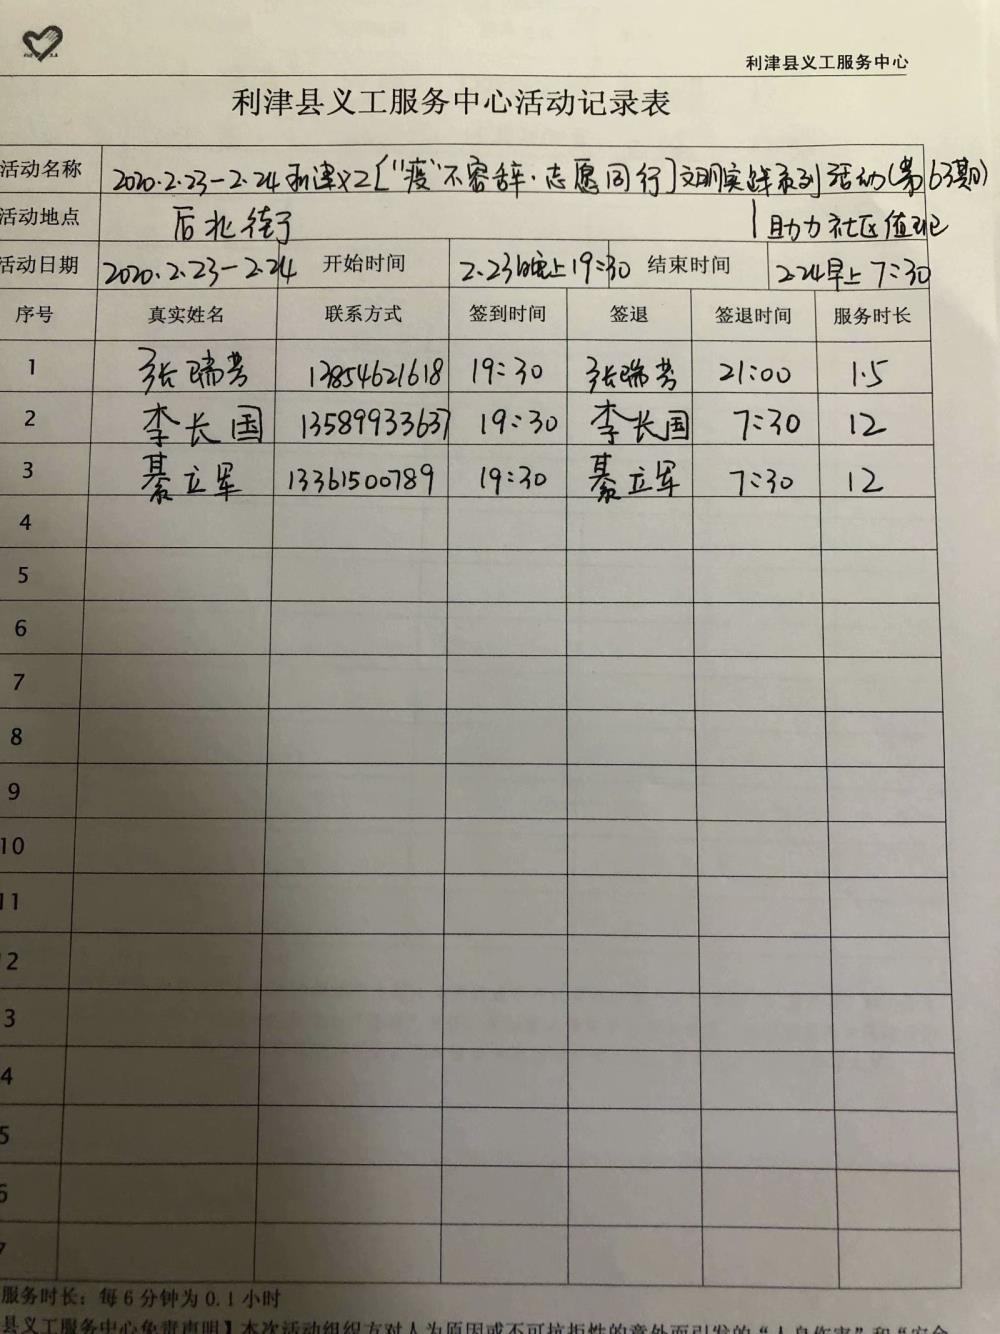 利津县义工服务中心
利津县义工服务中心活动记录表
活动名称 2020.2.23-2.24利津义工["疫"不容辞·志愿同行]文明实践系列活动(第63期)
活动地点 后北街 助力社区值班
活动日期 2020.2.23-2.24 开始时间 2.23晚上19:30 结束时间 2.24早上7:30
序号 真实姓名 联系方式 签到时间 签退 签退时间 服务时长
1 张瑞芳 13854621618 19:30 张瑞芳 21:00 1.5
2 李长国 13589933637 19:30 李长国 7:30 12
3 綦立军 13361500789 19:30 綦立军 7:30 12
4
5
6
7
8
9
10
11
2
3
4
5
6
7
服务时长：每6分钟为0.1小时
县义工服务中心免责声明】本次活动组织方对人为原因或不可抗拒性的意外而引发的"人身伤害"和"安全